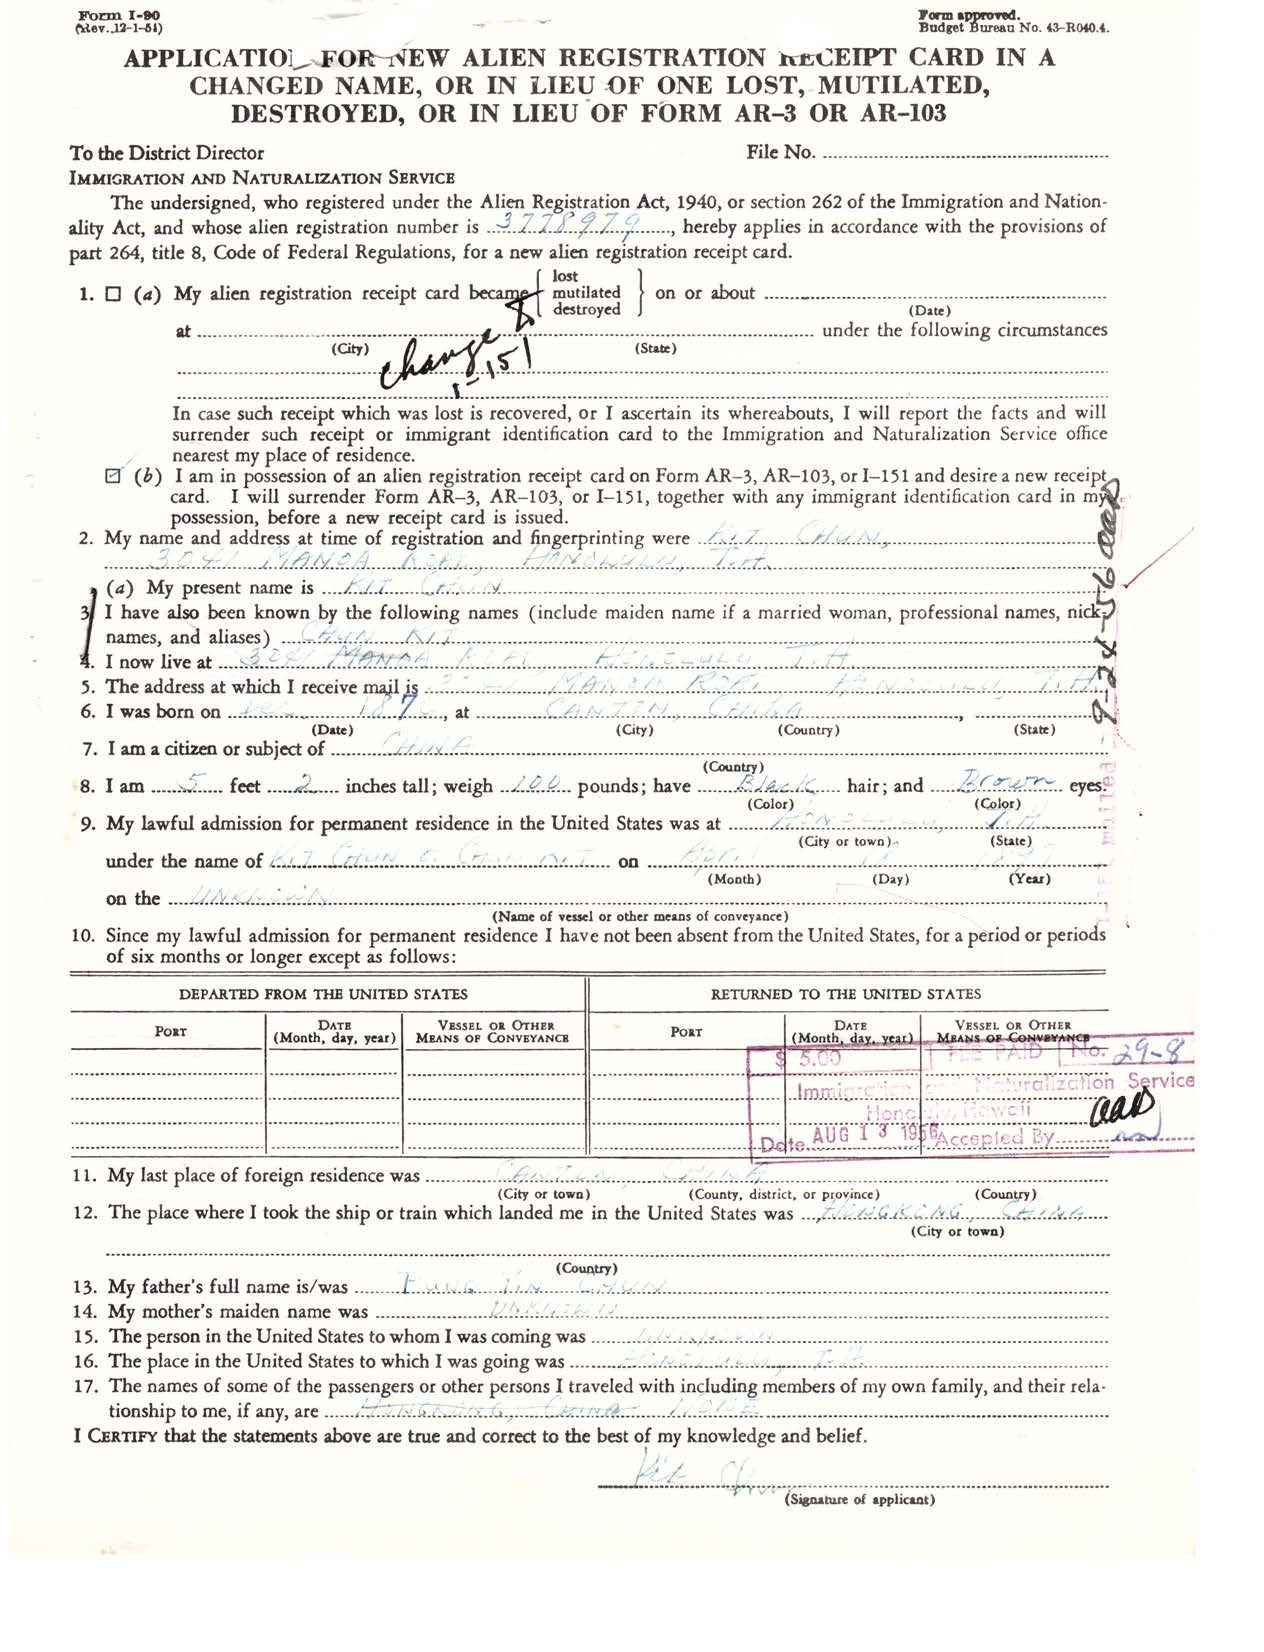 Form I-90
(Rev. 12-1-51)
Form approved.
Budget Bureau No. 43-R040.4.
APPLICATION FOR NEW ALIEN REGISTRATION RECEIPT CARD IN A
CHANGED NAME, OR IN LIEU OF ONE LOST, MUTILATED,
DESTROYED, OR IN LIEU OF FORM AR-3 OR AR-103
To the District Director
File No.
IMMIGRATION AND NATURALIZATION SERVICE
The undersigned, who registered under the Alien Registration Act, 1940, or section 262 of the Immigration and Nation-
ality Act, and whose alien registration number is 3778979, hereby applies in accordance with the provisions of
part 264, title 8, Code of Federal Regulations, for a new alien registration receipt card.
1. ☐ (a) My alien registration receipt card became { lost mutilated destroyed } on or about
(Date)
at under the following circumstances
(City) (State)
change to
I-151
In case such receipt which was lost is recovered, or I ascertain its whereabouts, I will report the facts and will
surrender such receipt or immigrant identification card to the Immigration and Naturalization Service office
nearest my place of residence.
☑ (b) I am in possession of an alien registration receipt card on Form AR-3, AR-103, or I-151 and desire a new receipt
card. I will surrender Form AR-3, AR-103, or I-151, together with any immigrant identification card in my
possession, before a new receipt card is issued.
2. My name and address at time of registration and fingerprinting were KIT CHUN,
3041 MANOA ROAD, HONOLULU, T.H.
(a) My present name is KIT CHUN
3. I have also been known by the following names (include maiden name if a married woman, professional names, nick-
names, and aliases) CHUN KIT
4. I now live at 3241 MANOA ROAD HONOLULU T.H.
5. The address at which I receive mail is 3241 MANOA ROAD HONOLULU, T.H.
6. I was born on Dec. 1876, at CANTON, CHINA,
(Date) (City) (Country) (State)
7. I am a citizen or subject of CHINA
(Country)
8. I am 5 feet 2 inches tall; weigh 100 pounds; have Black hair; and Brown eyes.
(Color) (Color)
9. My lawful admission for permanent residence in the United States was at HONOLULU, T.H.
(City or town) (State)
under the name of KIT CHUN or CHUN KIT on April
(Month) (Day) (Year)
on the UNKNOWN
(Name of vessel or other means of conveyance)
I-151 mailed 9-24-56 aad
10. Since my lawful admission for permanent residence I have not been absent from the United States, for a period or periods
of six months or longer except as follows:
DEPARTED FROM THE UNITED STATES RETURNED TO THE UNITED STATES
PORT DATE (Month, day, year) VESSEL OR OTHER MEANS OF CONVEYANCE PORT DATE (Month, day, year) VESSEL OR OTHER MEANS OF CONVEYANCE
$ 5.00 FEE PAID No. 29-8
Immigration and Naturalization Service
Honolulu, Hawaii
Date AUG 13 1956 Accepted By aad
11. My last place of foreign residence was CANTON, CHINA
(City or town) (County, district, or province) (Country)
12. The place where I took the ship or train which landed me in the United States was HONGKONG, CHINA
(City or town)
(Country)
13. My father's full name is/was FUNG YIN CHUN
14. My mother's maiden name was UNKNOWN
15. The person in the United States to whom I was coming was UNKNOWN
16. The place in the United States to which I was going was HONOLULU, T.H.
17. The names of some of the passengers or other persons I traveled with including members of my own family, and their rela-
tionship to me, if any, are HONGKONG, CHINA NONE
I CERTIFY that the statements above are true and correct to the best of my knowledge and belief.
Kit Chun
(Signature of applicant)